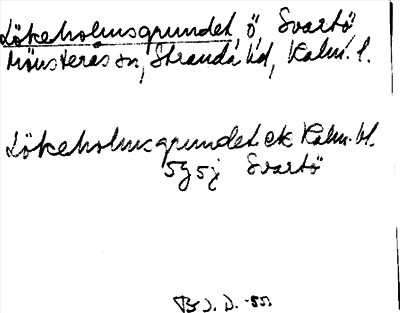 Lökeholmsgrundet, ö, Svartö
Mönsterås sn, Stranda hd, Kalm. l.
Lökeholmsgrundet ek Kalm. bl.
5g 5j Svartö